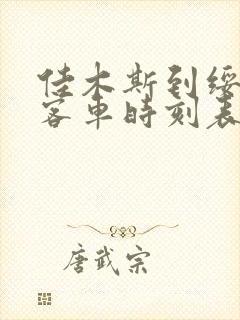 佳木斯到绥
客车时刻表
唐武宗